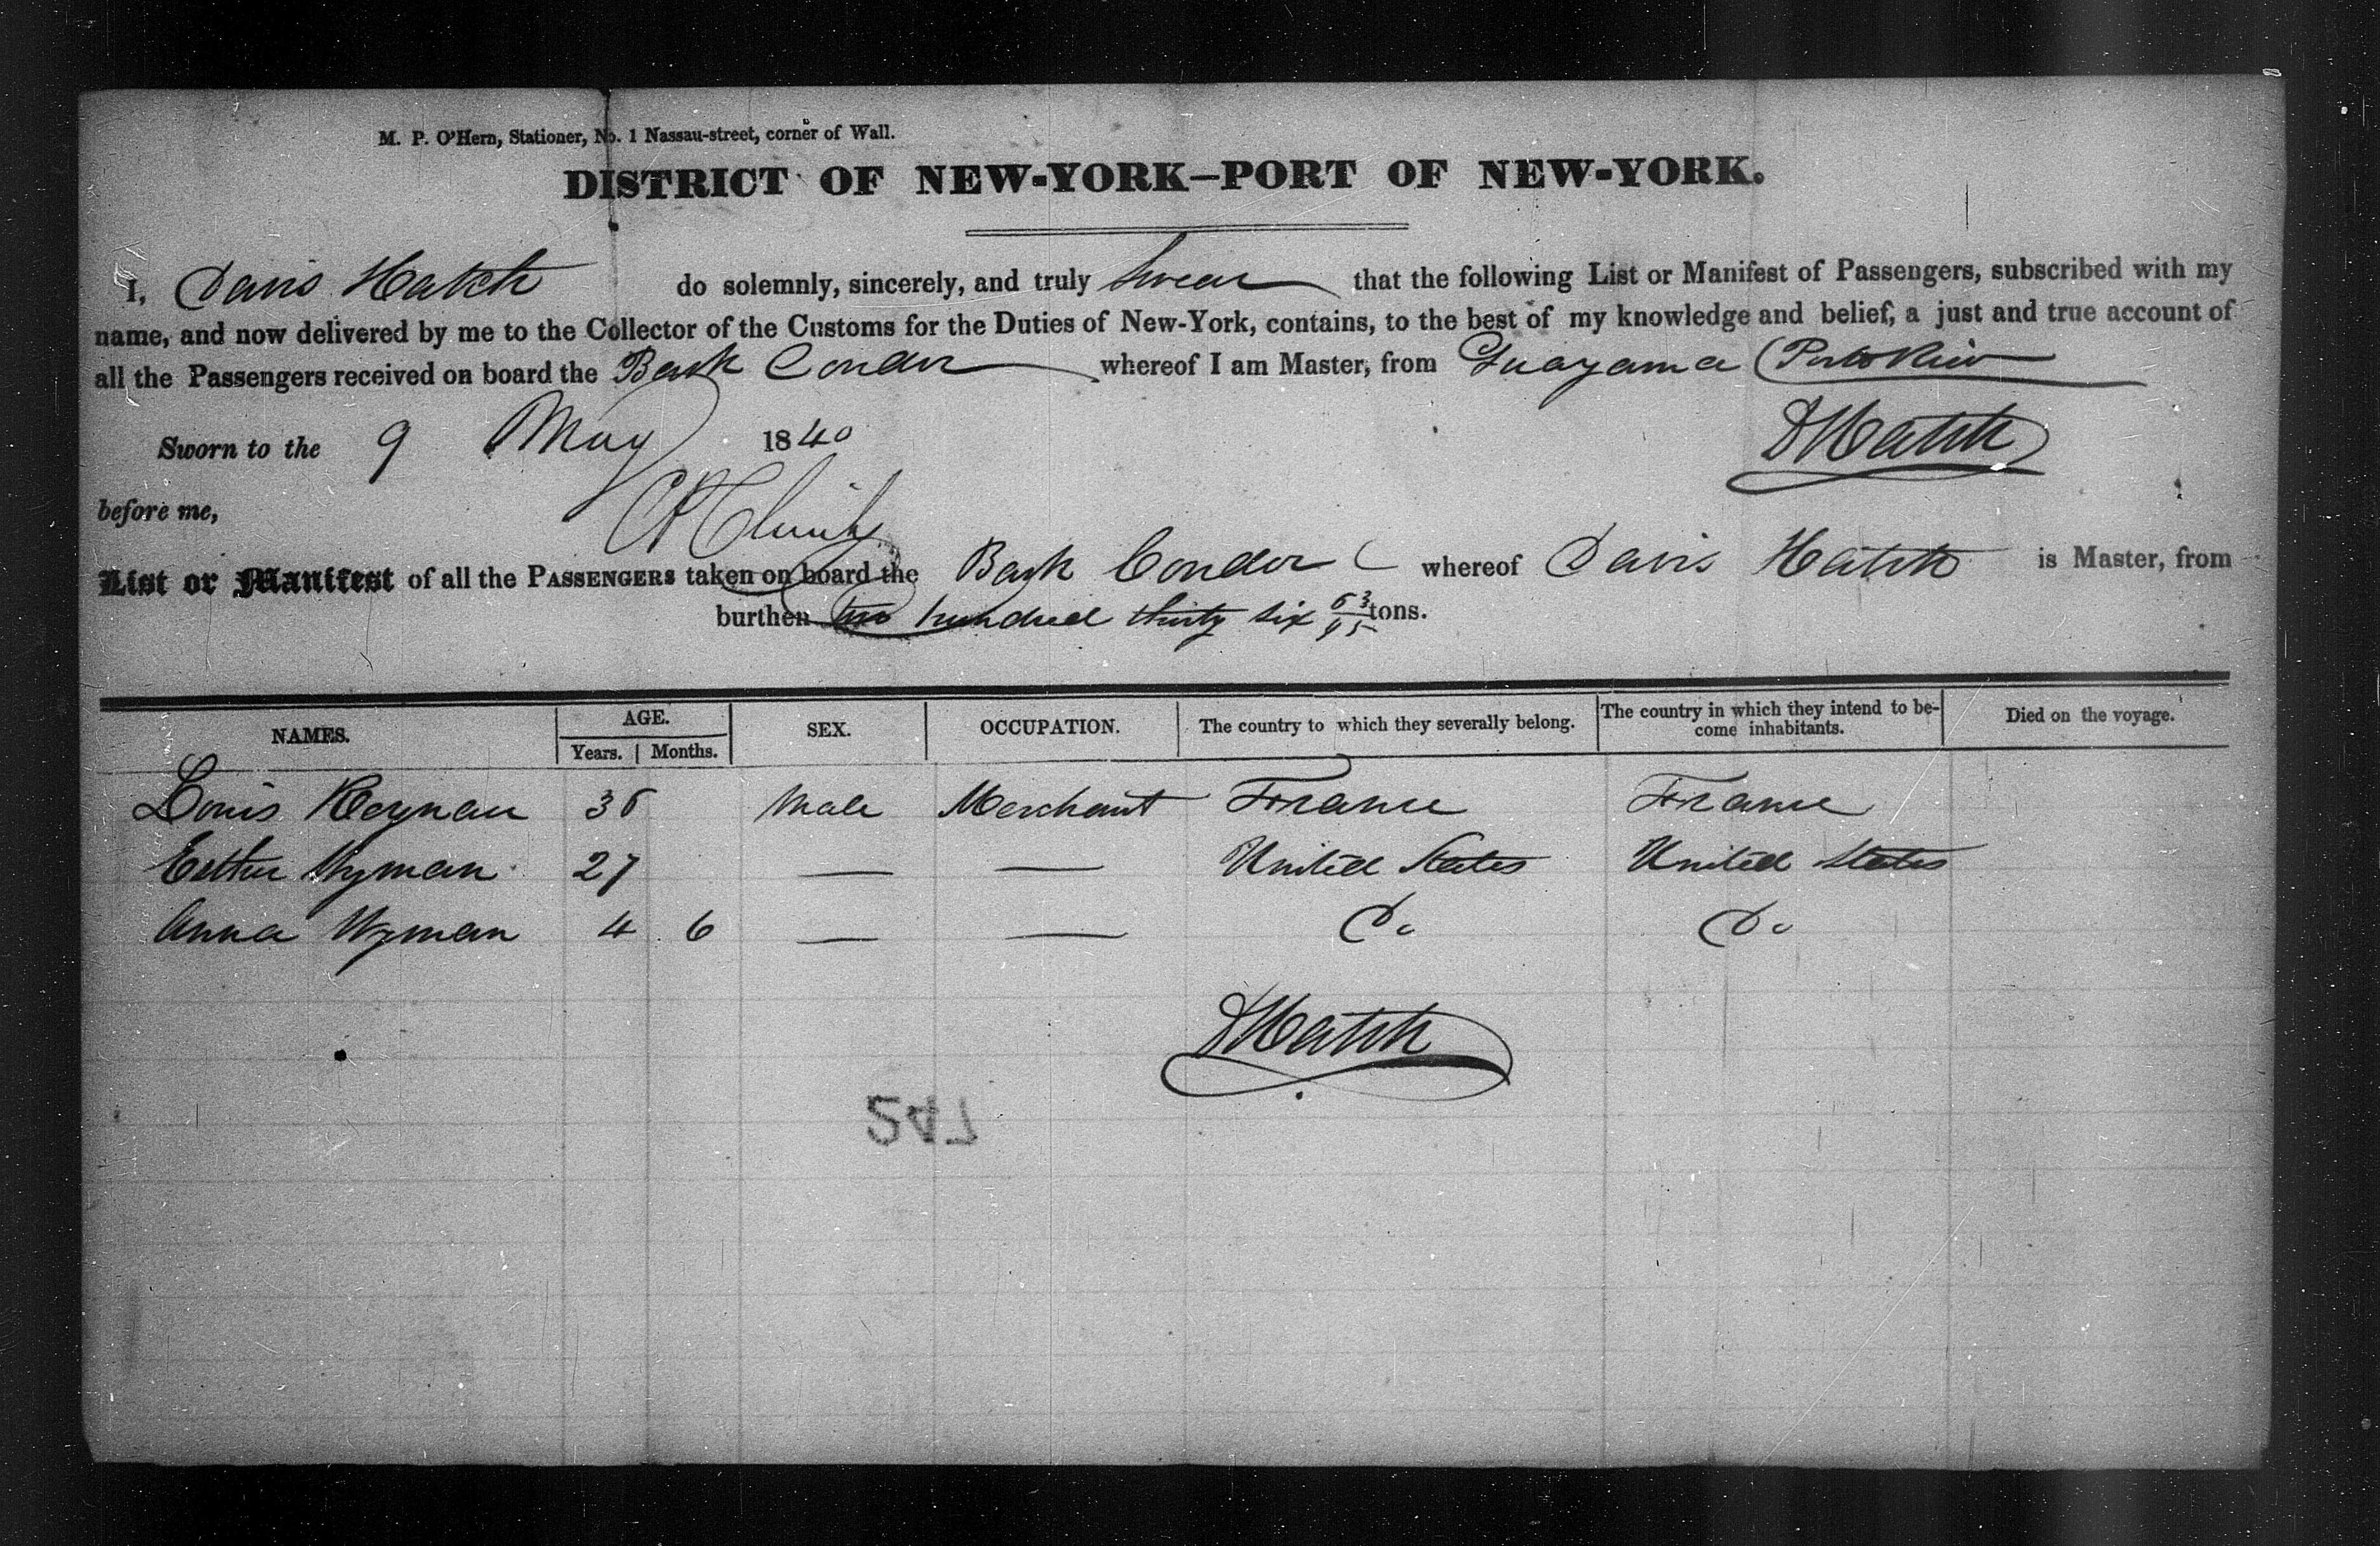 M. P. O'Hern, Stationer, No. 1 Nassau-street, corner of Wall.
DISTRICT OF NEW-YORK—PORT OF NEW-YORK.
I, Davis Hatch do solemnly, sincerely, and truly swear that the following List or Manifest of Passengers, subscribed with my
name, and now delivered by me to the Collector of the Customs for the Duties of New-York, contains, to the best of my knowledge and belief, a just and true account of
all the Passengers received on board the Bark Condor whereof I am Master, from Guayama (Porto Rico
Sworn to the 9 May 1840 D Hatch
before me,
List or Manifest of all the PASSENGERS taken on board the Bark Condor whereof Davis Hatch is Master, from
burthen two hundred thirty six 53/95 tons.
NAMES. AGE. Years. Months. SEX. OCCUPATION. The country to which they severally belong. The country in which they intend to become inhabitants. Died on the voyage.
Louis 36 Male Merchant France France
Esther Wyman 27 — — United States United States
Anna Wyman 4 6 — — Do Do
D Hatch
247